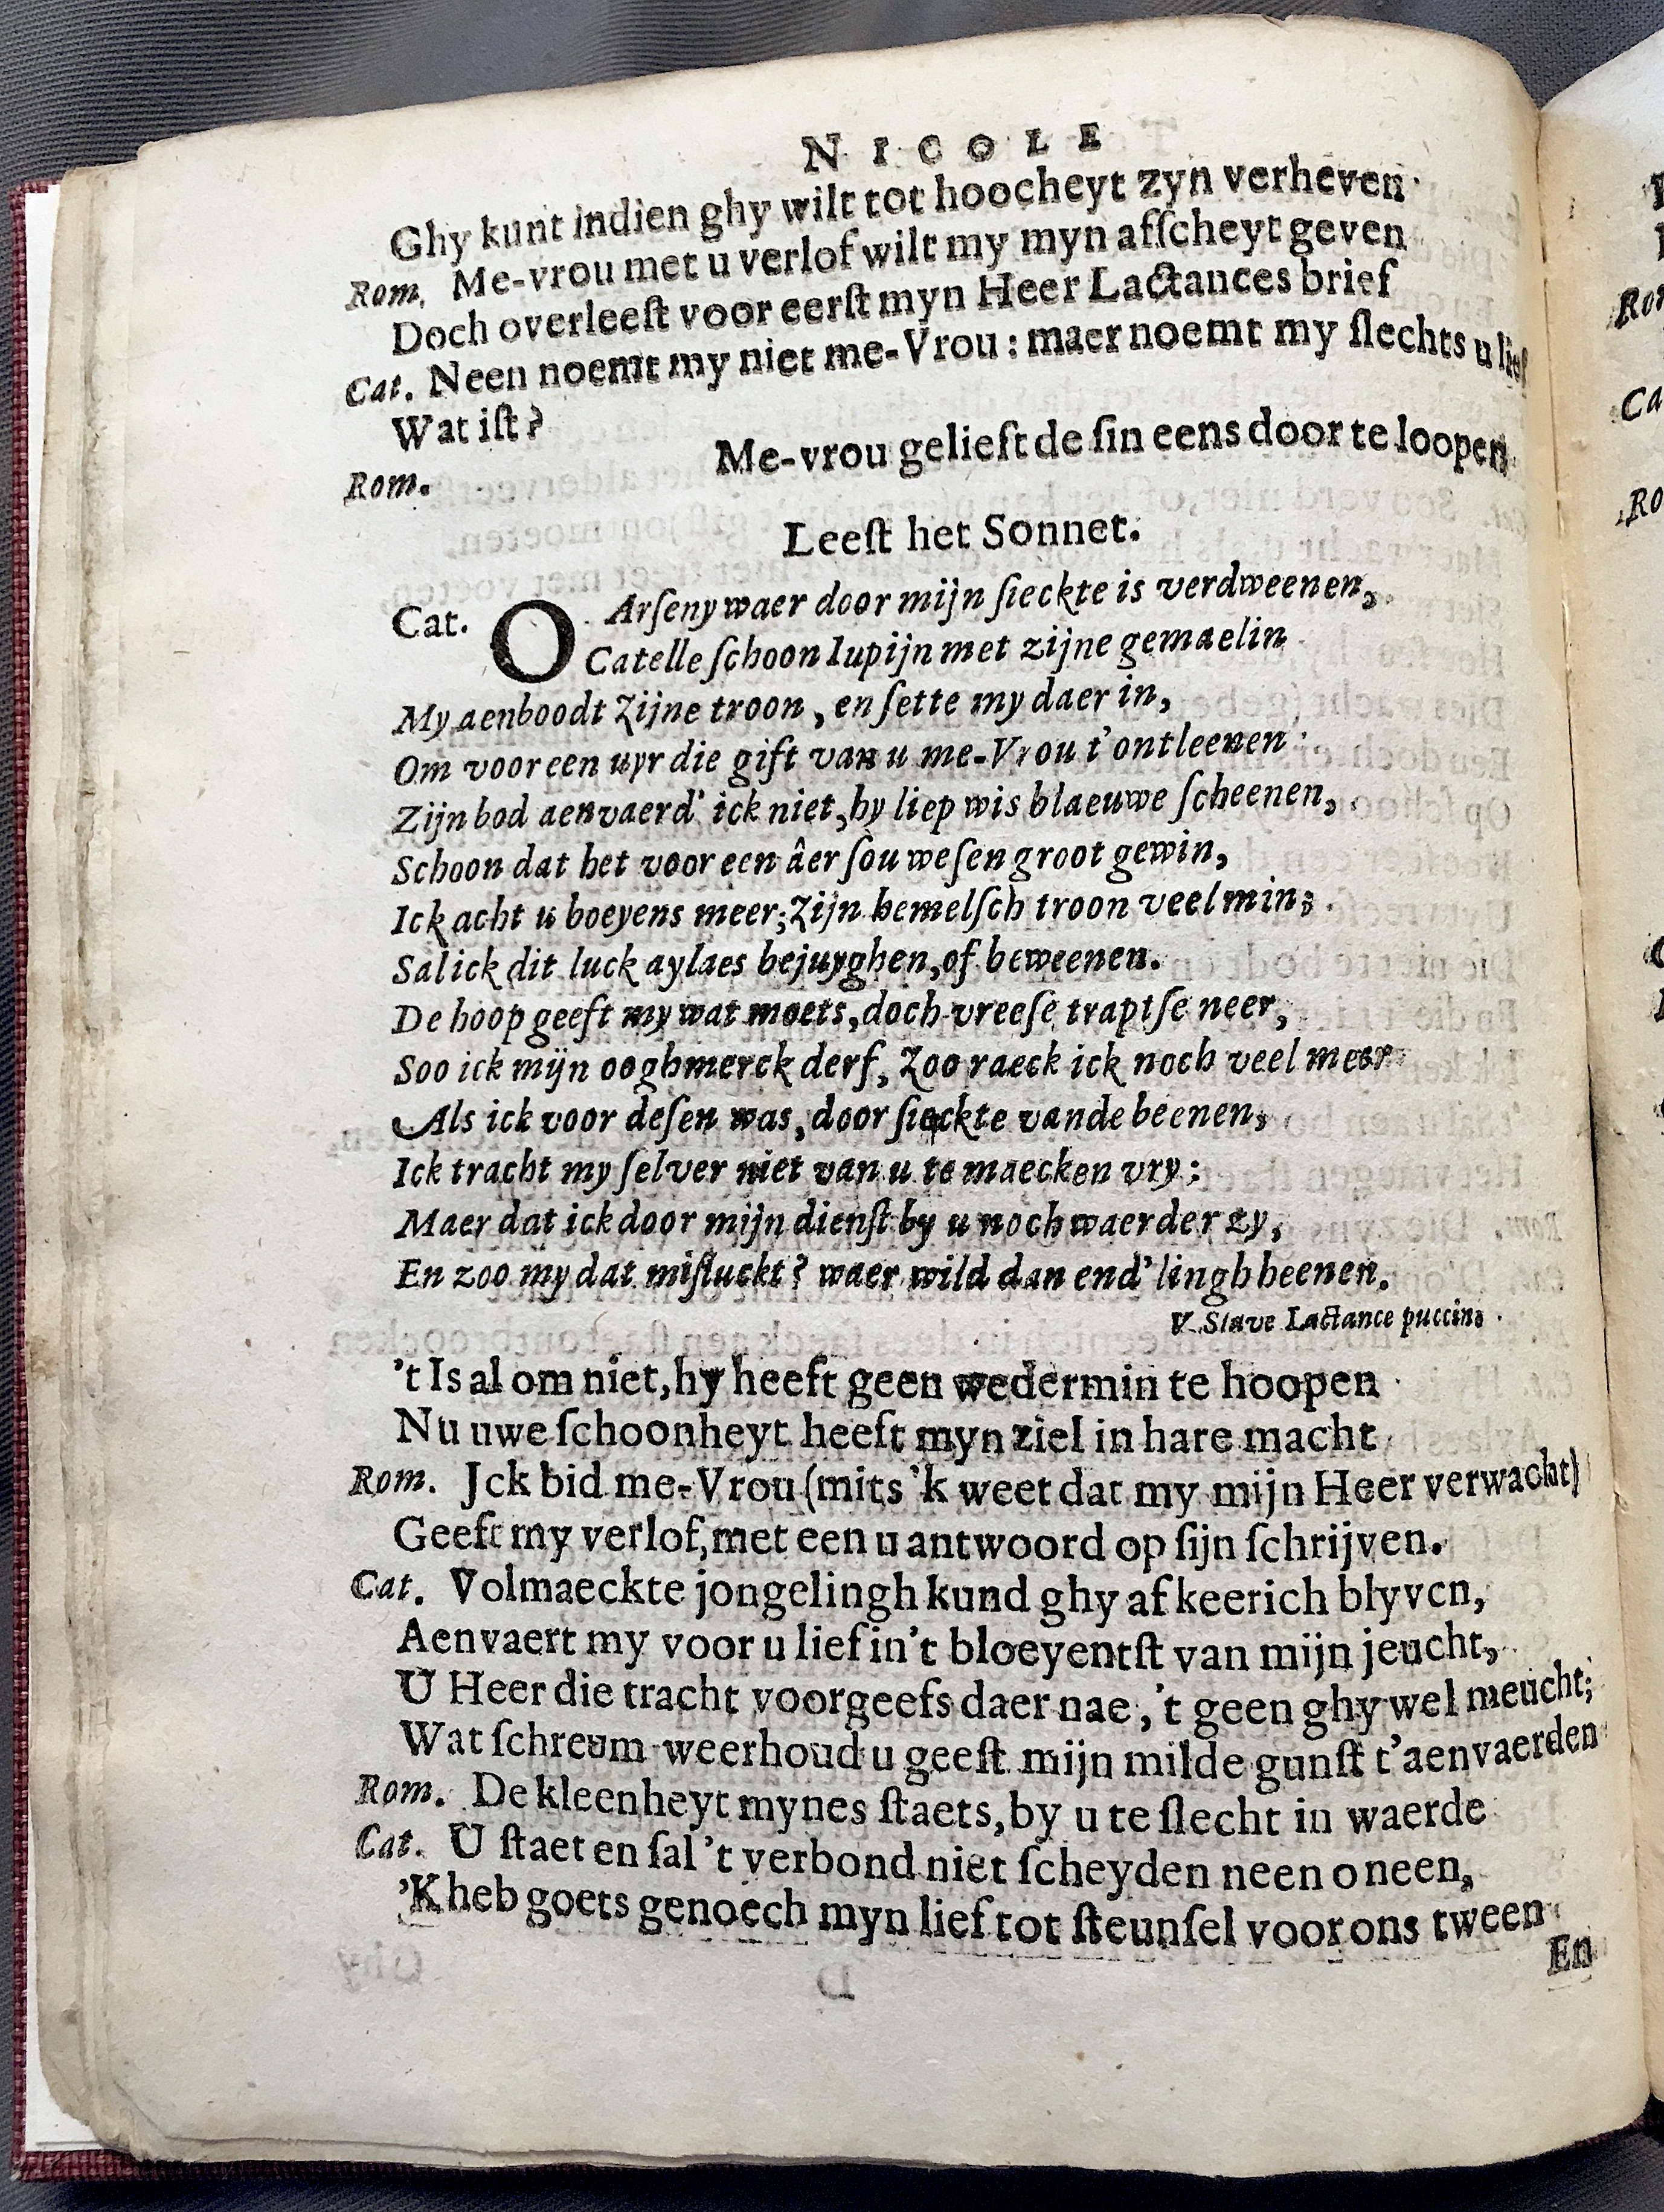 NICOLE
Ghy kunt indien ghy wilt tot hoocheyt zyn verheven
Rom. Me-vrou met u verlof wilt my myn afſcheyt geven
Doch overleeſt voor eerſt myn Heer Lactances brief
Cat. Neen noemt my niet me-Vrou: maer noemt my ſlechts u lief
Wat iſt?
Rom. Me-vrou gelieft de ſin eens door te loopen
Leeſt het Sonnet.
Cat. O Arſeny waer door mijn ſieckte is verdweenen,
Catelle ſchoon Iupijn met zijne gemaelin
My aenboodt Zijne troon, en ſette my daer in,
Om voor een uyr die gift van u me-Vrou t'ontleenen
Zijn bod aenvaerd' ick niet, hy liep wis blaeuwe ſcheenen,
Schoon dat het voor een âer ſou weſen groot gewin,
Ick acht u boeyens meer; Zijn hemelſch troon veel min;
Sal ick dit luck aylaes bejuyghen, of beweenen.
De hoop geeft my wat moets, doch vreeſe traptſe neer,
Soo ick mijn ooghmerck derf, Zoo raeck ick noch veel meer
Als ick voor deſen was, door ſieckte vande beenen,
Ick tracht my ſelver niet van u te maecken vry:
Maer dat ick door mijn dienſt by u noch waerder zy,
En zoo my dat miſluckt? waer wild dan end'lingh heenen.
V Slave Lactance puccins
't Is al om niet, hy heeft geen wedermin te hoopen
Nu uwe ſchoonheyt heeft myn ziel in hare macht
Rom. Jck bid me-Vrou (mits 'k weet dat my mijn Heer verwacht)
Geeft my verlof, met een u antwoord op ſijn ſchrijven.
Cat. Volmaeckte jongelingh kund ghy afkeerich blyven,
Aenvaert my voor u lief in't bloeyentſt van mijn jeucht,
U Heer die tracht voorgeefs daer nae, 't geen ghy wel meucht;
Wat ſchreum weerhoud u geeſt mijn milde gunſt t'aenvaerden
Rom. De kleenheyt mynes ſtaets, by u te ſlecht in waerde
Cat. U ſtaet en ſal 't verbond niet ſcheyden neen o neen,
'K heb goets genoech myn lief tot ſteunſel voor ons tween
En